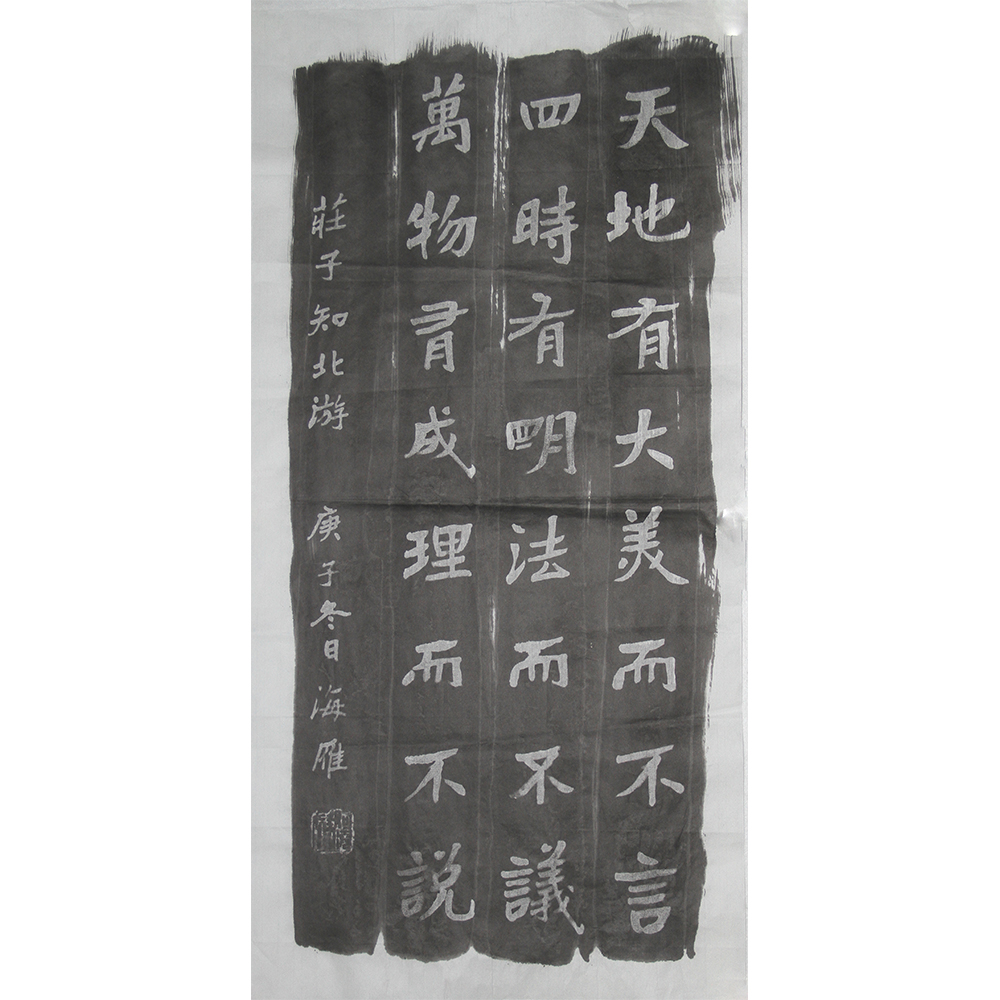 天地有大美而不言
四時有明法而不議
萬物有成理而不説
莊子知北游 庚子冬日 海雁